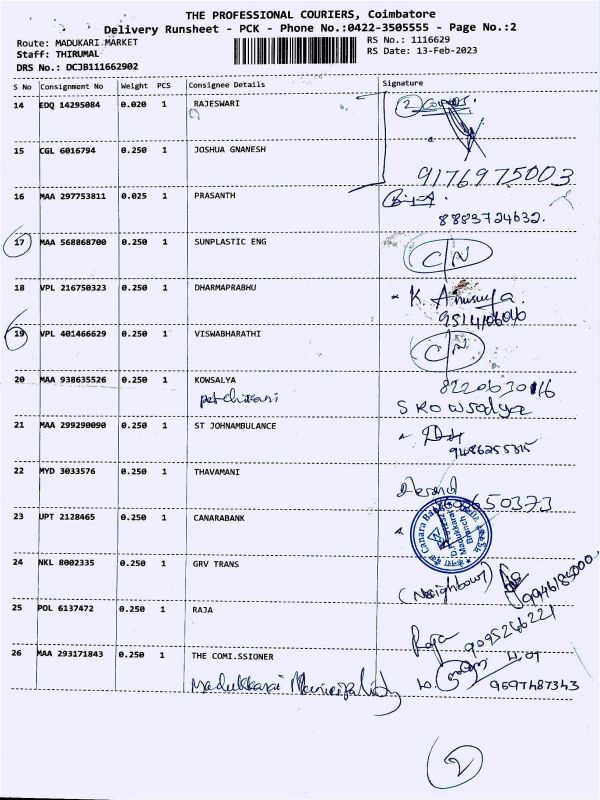 THE PROFESSIONAL COURIERS, Coimbatore
Delivery Runsheet - PCK - Phone No.:0422-3505555 - Page No.:2
Route: MADUKARI.MARKET
RS No.: 1116629
Staff: THIRUMAL
RS Date: 13-Feb-2023
DRS No.: DCJB111662902
S No Consignment No Weight PCS Consignee Details Signature
14 EDQ 14295084 0.020 1 RAJESWARI 2
15 CGL 6016794 0.250 1 JOSHUA GNANESH
9176975003
16 MAA 297753811 0.025 1 PRASANTH
8883724632.
17 MAA 568868700 0.250 1 SUNPLASTIC ENG C/N
18 VPL 216750323 0.250 1 DHARMAPRABHU K. Anusuya.
19 VPL 401466629 0.250 1 VISWABHARATHI C/N
20 MAA 938635526 0.250 1 KOWSALYA
S Kowsalya
21 MAA 299290090 0.250 1 ST JOHNAMBULANCE
22 MYD 3033576 0.250 1 THAVAMANI
23 UPT 2128465 0.250 1 CANARABANK Canara Bank Madukkarai Branch
24 NKL 8002335 0.250 1 GRV TRANS
(Neighbour)
25 POL 6137472 0.250 1 RAJA
Raja 9095266221
26 MAA 293171843 0.250 1 THE COMI.SSIONER
9597487343
2